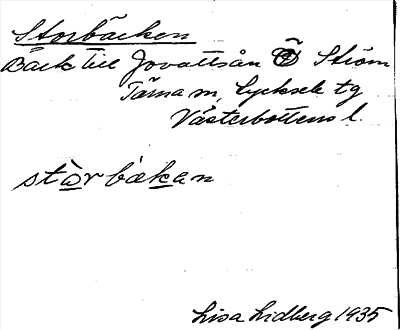 Storbäcken
Bäck till Jovattsån Ström
Tärna m, Lycksele tg
Västerbottens l.
stòrbäkan
Lisa Lidberg 1935